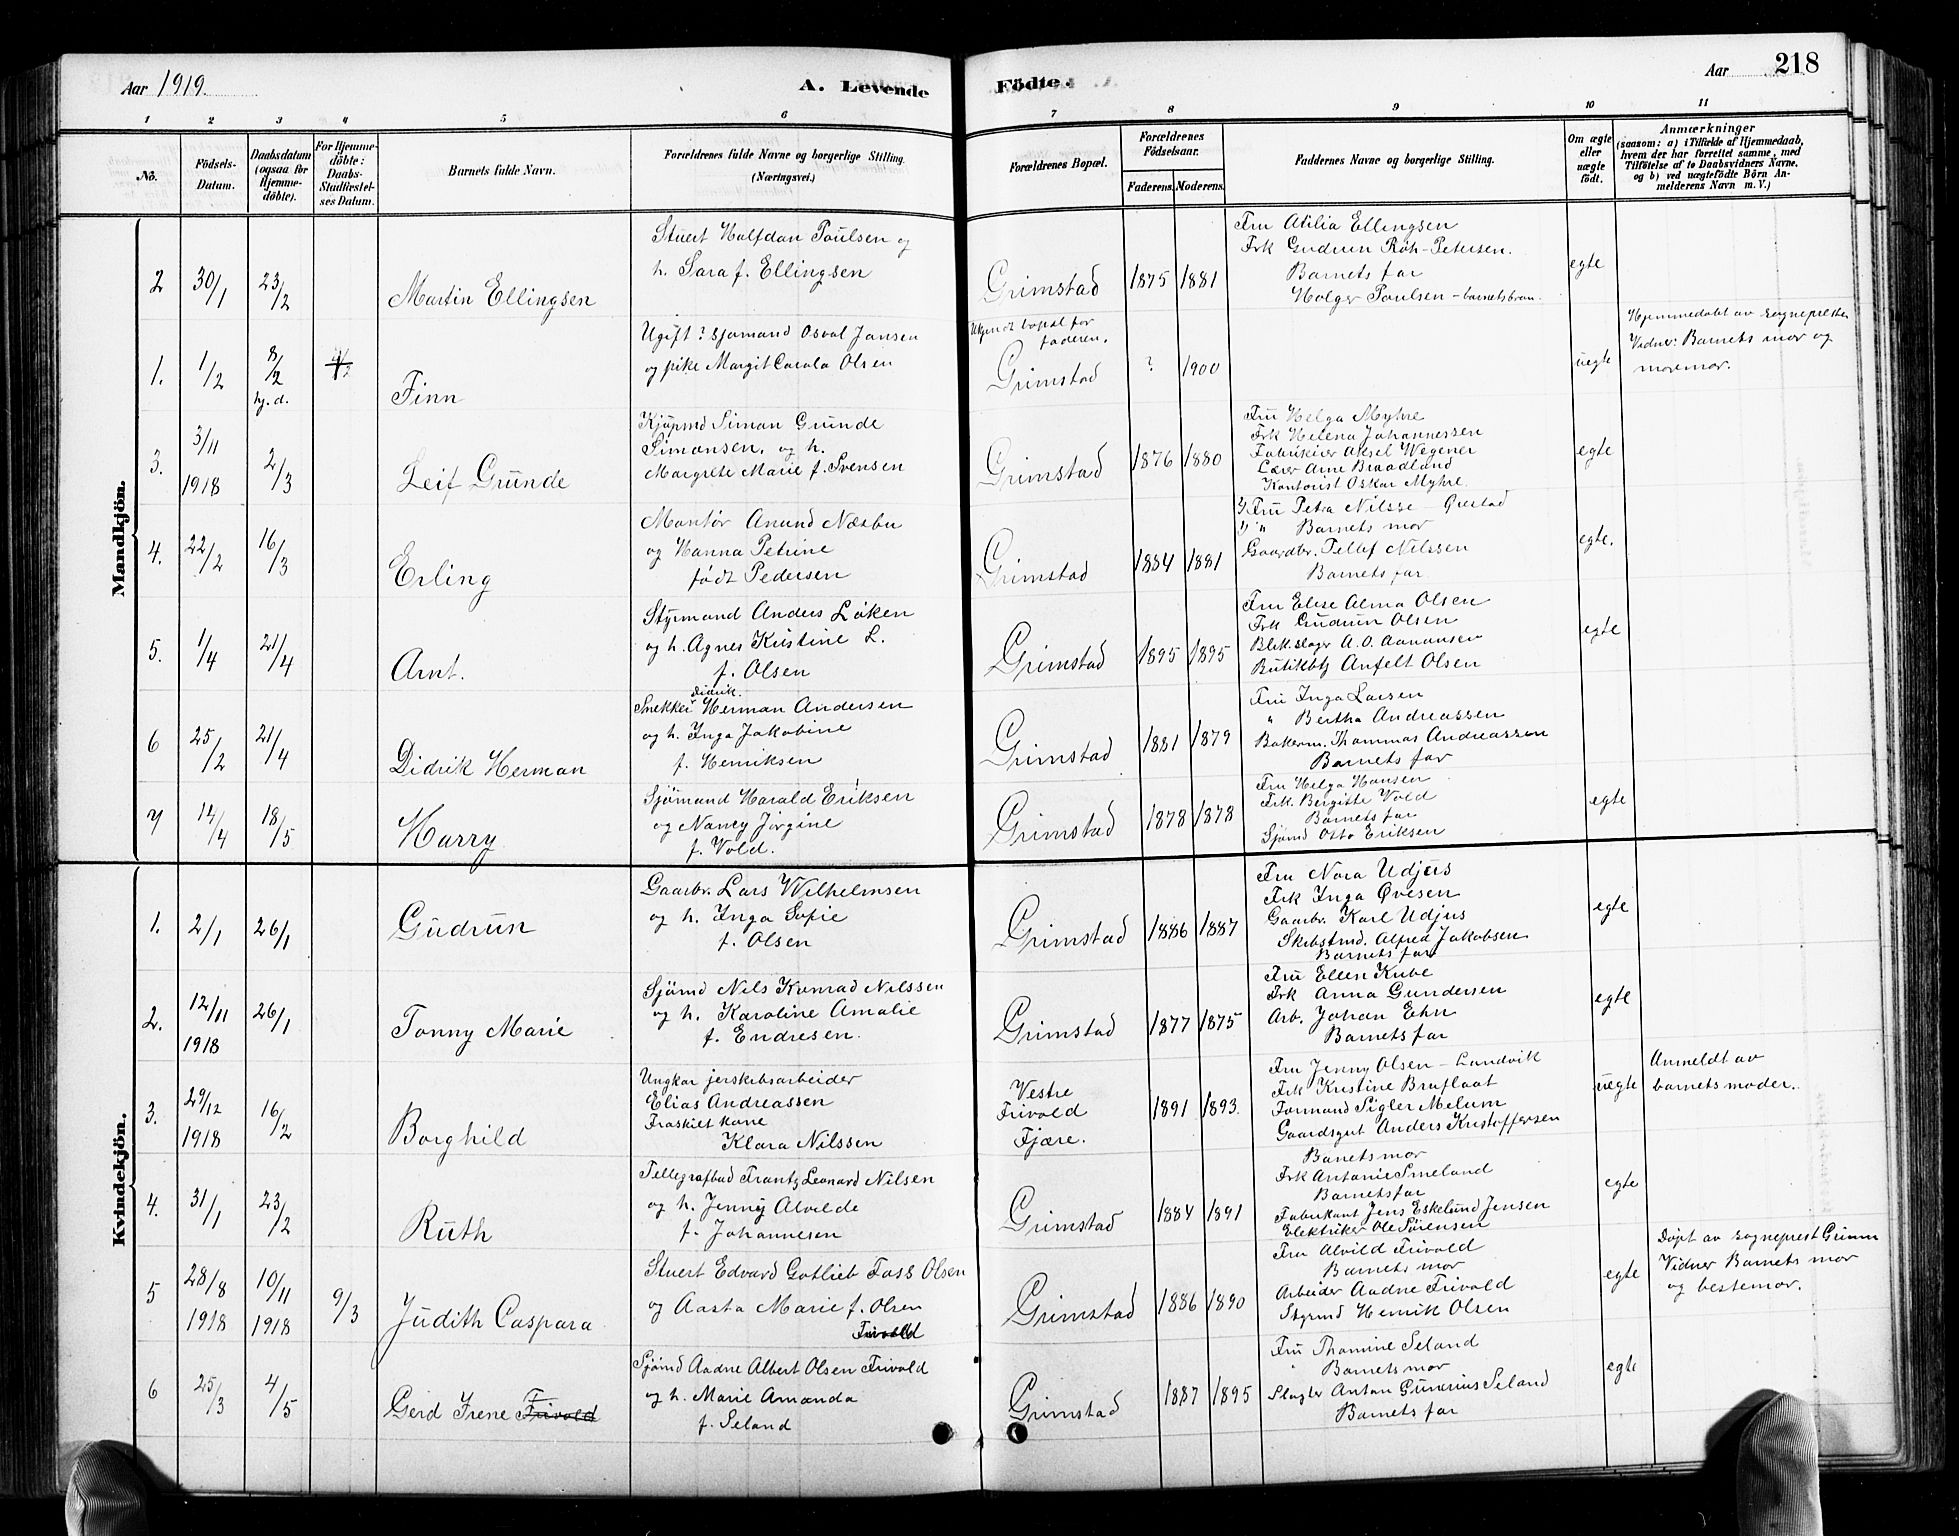 Aar 1919.
A. Levende
Födte.
Aar
218
1 2 3 4 5 6 7 8 9 10 11
No.
Födsels-
Datum.
Daabsdatum
(ogsaa for
Hjemme-
döbte).
For Hjemme-
döbte:
Daabs-
Stadfæstel-
ses Datum.
Barnets fulde Navn.
Forældrenes fulde Navne og borgerlige Stilling.
(Næringsvei.)
Forældrenes Bopæl.
Forældrenes
Födselsaar.
Faderens. Moderens.
Faddernes Navne og borgerlige Stilling.
Om ægte
eller
uægte
födt.
Anmærkninger
(saasom: a) i Tilfælde af Hjemmedaab,
hvem der har forrettet samme, med
Tilföielse af to Daabsvidners Navne,
og b) ved uægtefödte Börn An-
melderens Navn m. V.)
Mandkjön.
2 30/1 23/2
Martin Ellingsen
Stuert Halfdan Paulsen og
h. Sara f. Ellingsen
Grimstad 1875 1881
Fru Atilia Ellingsen
Frk Gudrun Röh-Petersen.
Barnets far
Holger Paulsen - barnets bror.
egte
1. 1/2 8/2
hj. d.
Finn
Ugift ? sjømand Osval Jansen
og pike Margit Carola Olsen
Ukjendt bopæl for
faderen.
Grimstad ? 1900
uegte
Hjemmedøbt av sogneprestn
Vidner: Barnets mor og
mormor.
3. 3/11
1918
2/3
Leif Grunde
Kjøpmd Simon Grunde
Simonsen. og h.
Margrete Marie f. Svensen
Grimstad 1876 1880
Fru Helga Myhre
Frk Helena Johannessen
Fabrikeier Aksel Wegener
Lærer Arne Braadland
Kontorist Oskar Myhre.
egte
4. 22/2 16/3
Erling
Montør Anund Næsbu
og Hanna Petrine
født Pedersen
Grimstad 1884 1881
Fru Petra Nilsse
" Barnets mor
Gaardbr. Tellef Nilssen
Barnets far
egte.
5. 1/4 21/4
Arnt.
Styrmand Anders Løken
og h. Agnes Kristine L.
f. Olsen
Grimstad 1895 1895
Fru Elise Alma Olsen
Frk Gudrun Olsen
Blik.slager A. O. Aanonsen
Butikbtj Anfelt Olsen
egte
6 25/2 21/4
Didrik Herman
Didrik
Snekker Herman Andersen
og h. Inga Jakobine
f. Henriksen
Grimstad 1881 1879
Fru Inga Larsen
" Bertha Andreassen
Bakerm. Thommas Andreassen
Barnets far
7 14/4 18/5
Harry
Sjømand Harald Eriksen
og Nancy Jørgine
f. Vold.
Grimstad 1878 1878
Fru Helga Hansen
Frk. Bergitte Vold
Barnets far
Sjømd Otto Eriksen
egte
Kvindekjön.
1. 2/1 26/1
Gudrun
Gaarbr. Lars Wilhelmsen
og h. Inga Sofie
f. Olsen
Grimstad 1886 1887
Fru Nora Udjus
Frk Inga Øvesen
Gaarbr. Karl Udjus
Skibstmd. Alfred Jakobsen
Barnets far
egte
2. 12/11
1918
26/1
Tonny Marie
Sjømd Nils Konrad Nilssen
og h. Karoline Amalie
f. Endresen.
Grimstad 1877 1875
Fru Ellen Kube
Frk Anna Gundersen
Arb. Johan Ehn
Barnets far
egte
3. 29/12
1918
16/2
Borghild
Ungkar jerskibsarbeider
Elias Andreassen
Fraskilt kone
Klara Nilssen
Vestre
Frivold
Fjære.
1891 1893.
Fru Jenny Olsen - Landvik
Frk Kristine Bruflaat
Formand Sigler Melum
Gaardsgut Anders Kristoffersen
Barnets mor
uegte
Anmeldt av
barnets moder.
4. 31/1 23/2
Ruth
Tellegrafbud Frantz Leonard Nilsen
og h. Jenny Alvilde
f. Johannesen
Grimstad 1884 1891
Frk Antonie Smeland
Barnets far
Fabrikant Jens Eskelund Jensen
Elektriker Ole Sørensen
egte
5 28/8
1918
10/11
1918
9/3
Judith Caspara
Stuert Edvard Gotlieb Foss Olsen
og Aasta Marie f. Olsen
Frivold
Grimstad 1886 1890
Fru Alvild Frivold
Barnets mor
Arbeider Aadne Frivold
Styrmd Henrik Olsen
egte
Døpt av sogneprest Grimm
Vidner Barnets mor
og bestemor.
6 25/3 4/5
Gerd Irene Frivold
Sjømd Aadne Albert Olsen Frivold
og h. Marie Amanda
f. Seland
Grimstad 1887 1895
Fru Thomine Seland
" Barnets mor
Slagter Anton Gunerius Seland
Barnets far
egte